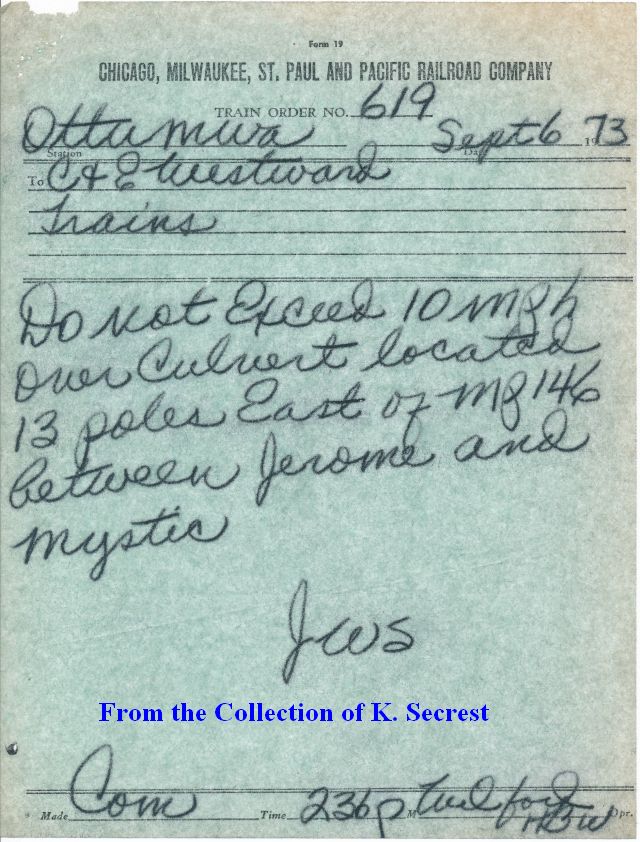 Form 19
CHICAGO, MILWAUKEE, ST. PAUL AND PACIFIC RAILROAD COMPANY
TRAIN ORDER NO. 619
Ottumwa Sept 6 1973
Station Da
To C & E Westward
Trains
Do not Exceed 10 mph
over Culvert located
13 poles East of MP 146
between Jerome and
Mystic
JWS
From the Collection of K. Secrest
Made Com Time 236 p M Opr.